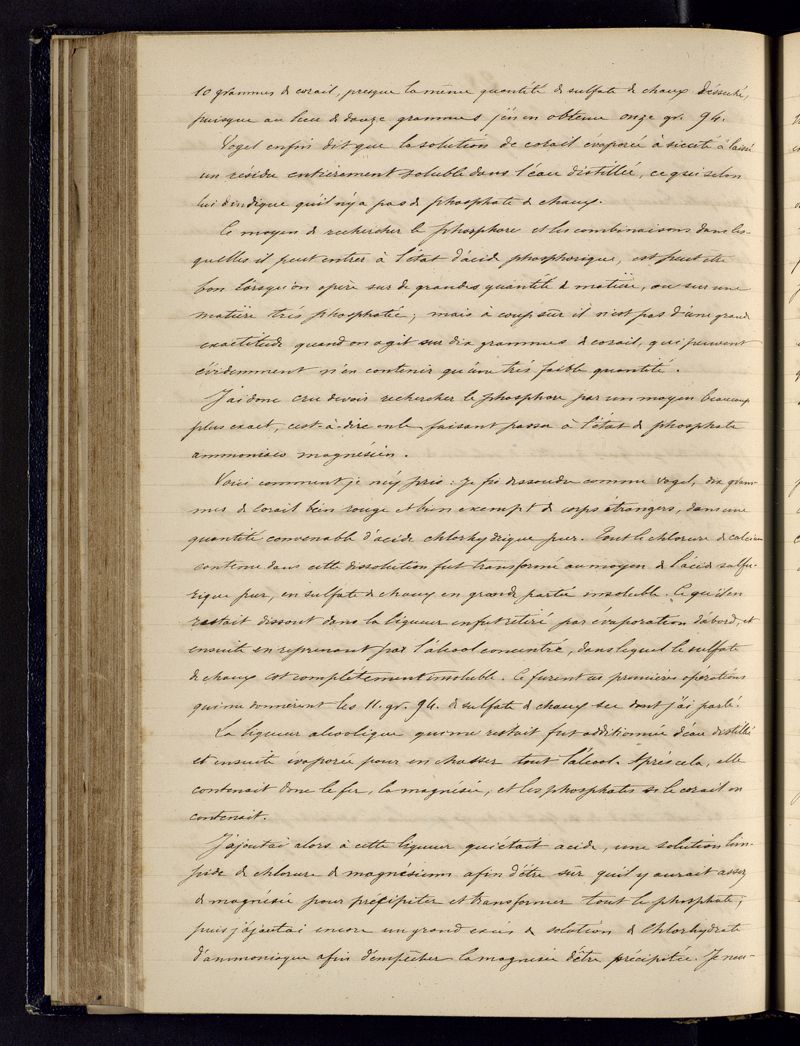 10 grammes de corail, presque la même quantité de sulfate de chaux desséché,
puisque au lieu de douze grammes j'en ai obtenu onze gr. 94.
Vogel enfin dit que la solution de corail évaporée à siccité a laissé
un résidu entièrement soluble dans l'eau distillée, ce qui selon
lui indique qu'il n'y a pas de phosphate de chaux.
Ce moyen de rechercher le phosphore et les combinaisons dans les-
quelles il peut entrer à l'état d'acide phosphorique, est peut etre
bon lorsqu'on opère sur de grandes quantité de matière, ou sur une
matière très phosphatée; mais à coup sûr il n'est pas d'une grande
exactitude quand on agit sur dix grammes de corail, qui peuvent
évidemment n'en contenir qu'une très faible quantité.
J'ai donc cru devoir rechercher le phosphore par un moyen beaucoup
plus exact, c'est-à-dire en le faisant passer à l'état de phosphate
ammoniaco magnésien.
Voici comment je m'y pris: je fis dissoudre comme Vogel, dix gram-
mes de corail bien rouge et bien exempt de corps étrangers, dans une
quantité convenable d'acide chlorhydrique pur. Tout le chlorure de calcium
contenu dans cette dissolution fut transformé au moyen de l'acide sulfu-
rique pur, en sulfate de chaux en grande partie insoluble. Ce qu'il en
restait dissout dans la liqueur en fut retiré par évaporation d'abord, et
ensuite en reprenant par l'alcool concentré, dans lequel le sulfate
de chaux est complétement insoluble. Ce furent ces premières opérations
qui me donnèrent les 11. gr. 94. de sulfate de chaux sec dont j'ai parlé.
La liqueur alcoolique qui me restait fut additionnée d'eau distillée
et ensuite évaporée pour en chasser tout l'alcool. Après cela, elle
contenait donc le fer, la magnésie, et les phosphates si le corail en
contenait.
J'ajoutai alors à cette liqueur qui était acide, une solution lim-
pide de chlorure de magnésium afin d'être sûr qu'il y aurait assez
de magnésie pour précipiter et transformer tout le phosphate;
puis j'ajoutai encore un grand excès de solution de Chlorhydrate
d'ammoniaque afin d'empêcher la magnésie d'être précipitée. Je neu-